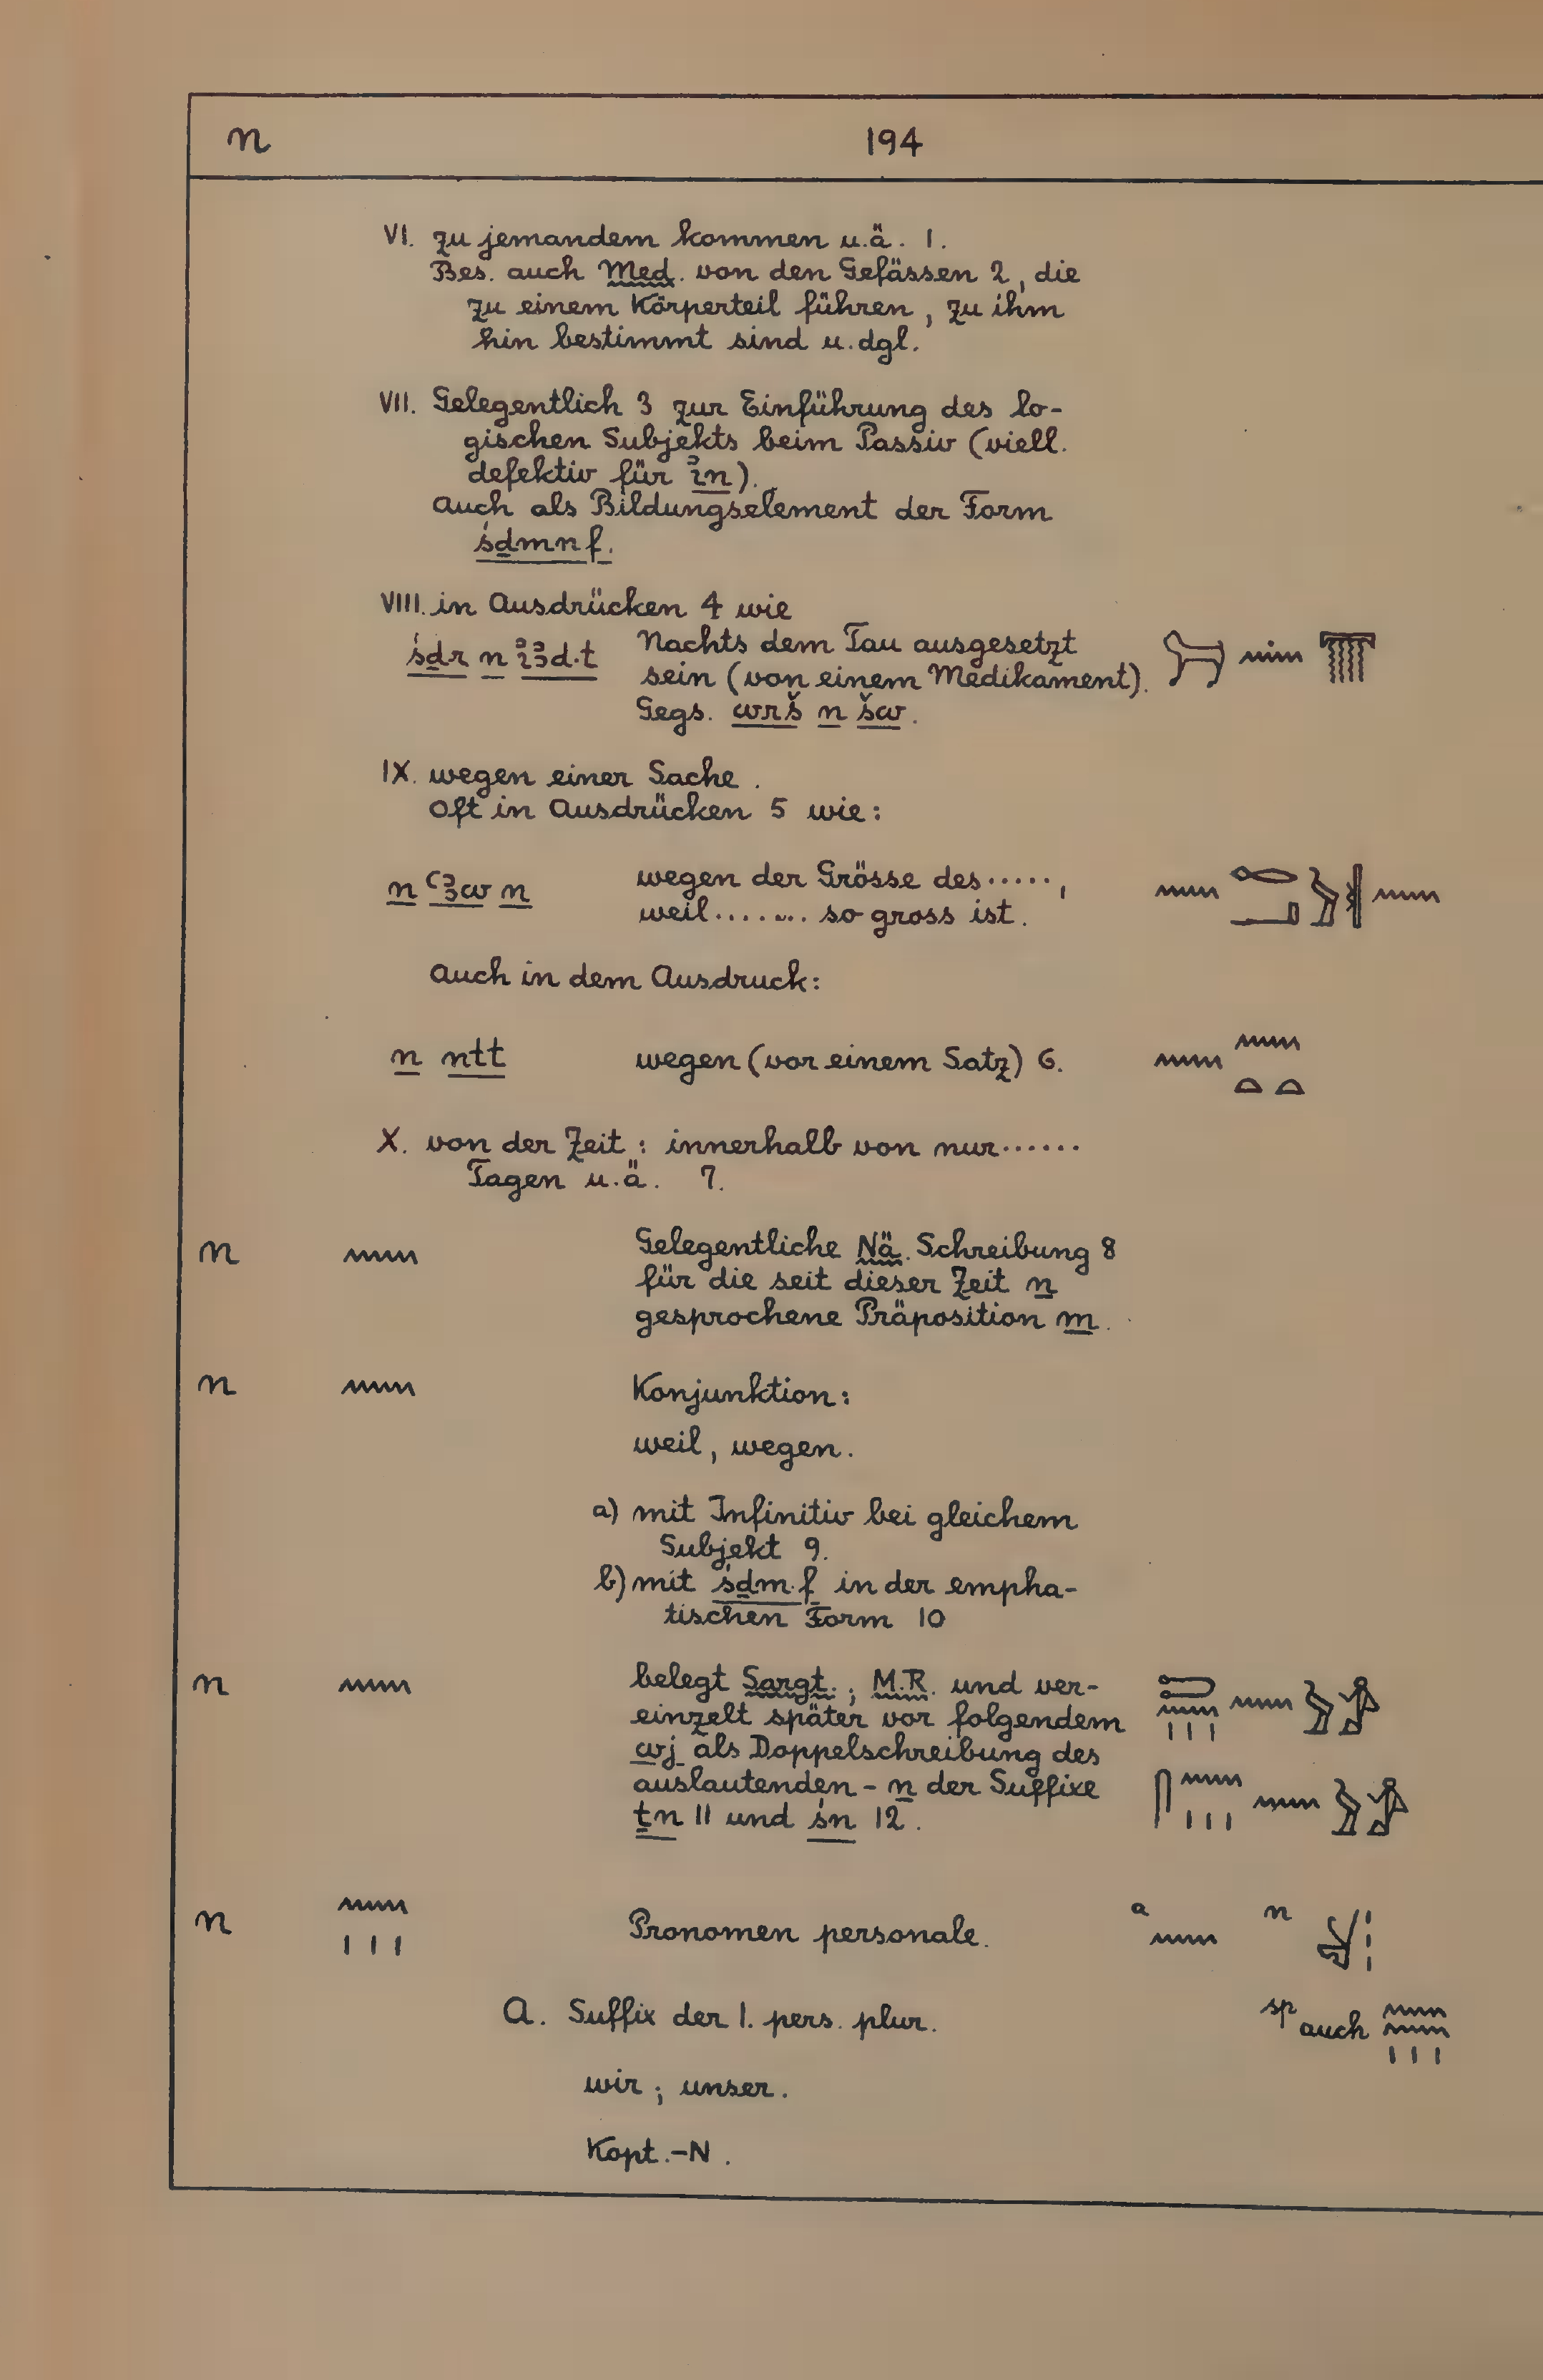 n 194
VI. zu jemandem kommen u.ä. 1.
Bes. auch Med. von den Gefässen 2, die
zu einem Körperteil führen, zu ihm
hin bestimmt sind u.dgl.
VII. Gelegentlich 3 zur Einführung des lo-
gischen Subjekts beim Passiv (viell.
defektiv für ỉn).
Auch als Bildungselement der Form
śḏmnf.
VIII. in Ausdrücken 4 wie
śḏr n ỉꜣd.t Nachts dem Tau ausgesetzt
sein (von einem Medikament).
Gegs. wrš n šw.
IX. wegen einer Sache.
Oft in Ausdrücken 5 wie:
n ꜥꜣw n wegen der Grösse des.....,
weil....... so gross ist.
Auch in dem Ausdruck:
n ntt wegen (vor einem Satz) 6. 𓈖 𓈖𓏏𓏏
X. von der Zeit: innerhalb von nur......
Tagen u.ä. 7.
n 𓈖 Gelegentliche Nä. Schreibung 8
für die seit dieser Zeit n
gesprochene Präposition m.
n 𓈖 Konjunktion:
weil, wegen.
a) mit Infinitiv bei gleichem
Subjekt 9.
b) mit śḏm.f in der empha-
tischen Form 10
n 𓈖 belegt Sargt.; M.R. und ver-
einzelt später vor folgendem
wj als Doppelschreibung des
auslautenden -n der Suffixe
ṯn 11 und śn 12.
n 𓈖𓏥 Pronomen personale. a 𓈖 n
A. Suffix der 1. pers. plur. sp auch 𓈖𓈖𓏥
wir; unser.
Kopt. -N.